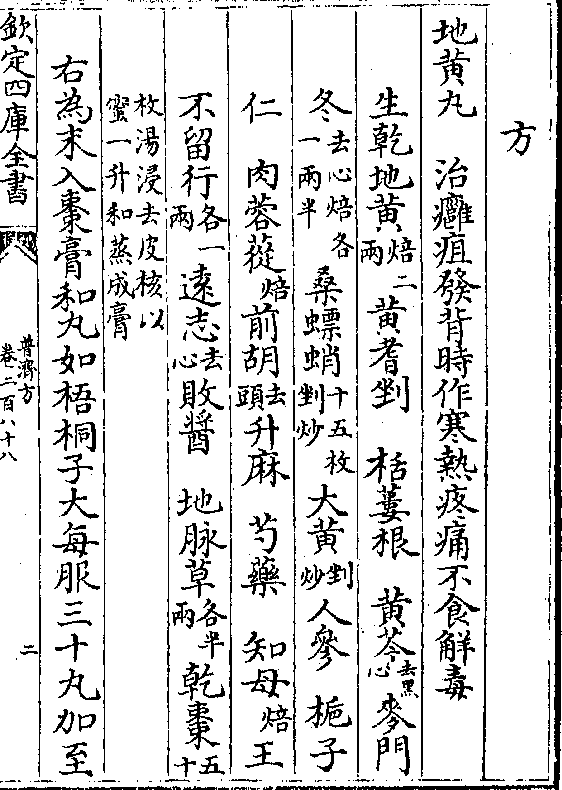 方
地黄丸　治癰疽發背時作寒熱疼痛不食解毒
生乾地黄焙二兩　黄耆剉　栝蔞根　黄芩去黑心　麥門
冬去心焙各一兩半　桑螵蛸十五枚剉炒　大黄剉炒　人參　梔子
仁　肉蓉蓯焙　前胡去頭　升麻　芍藥　知母焙　王
不留行各一兩　逺志去心　敗醬　地脉草各半兩　乾棗五十
枚湯浸去皮核以蜜一升和蒸成膏
右為末入棗膏和丸如梧桐子大每服三十丸加至
欽定四庫全書
普濟方
卷二百八十八
二